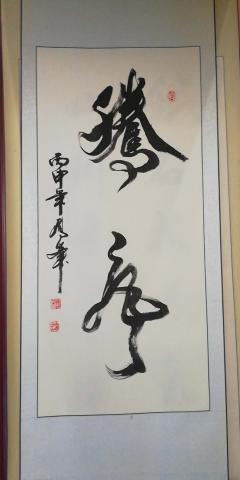 騰飛
丙申年